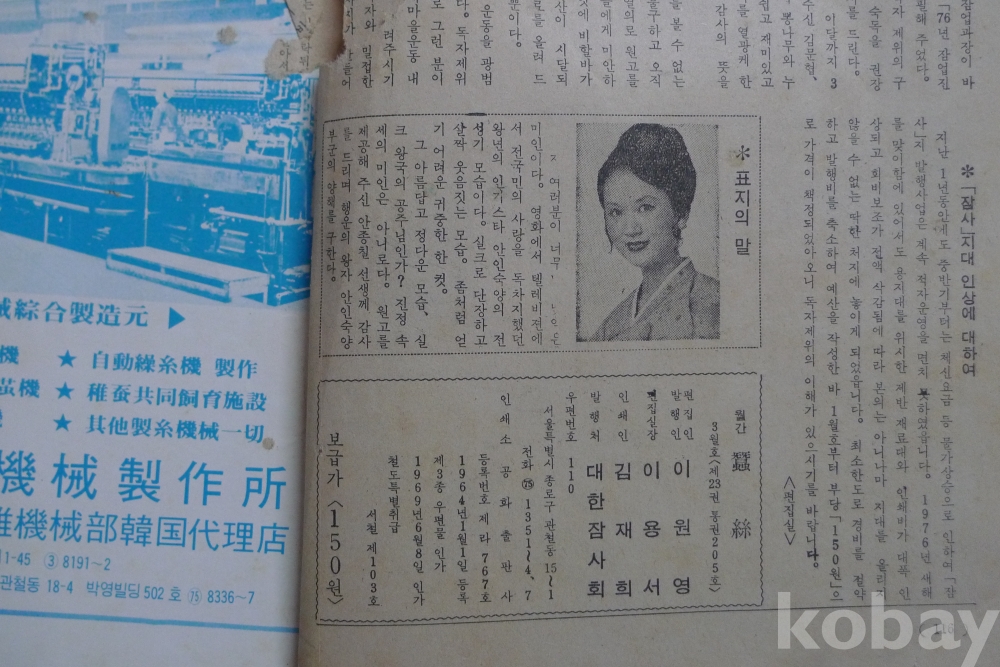 잠업과장이 바
「76년 잠업진
필해 주었다.
숙목을 권장
자 제위의 구
를 드린다.
이달까지 3
수신 김문협,
뽕나무와 누
쉽고 재미있고
를 열광케 한
감사의 뜻을
을 볼 수 없는
불구하고 오직
열의로 원고를
에게 미안하
것에 비할바가
산이 시달되
료를 올려 드
뿐이다.
운동을 광범
마을운동 내
로 그런 분이
다. 독자제위
려주시기
자와 밀접한
✻「잠사」지대 인상에 대하여
지난 1년동안에도 중반기부터는 체신요금 등 물가상승으로 인하여 「잠
사」지 발행사업은 계속 적자운영을 면치 못하였음니다. 1976년 새해
를 맞이함에 있어서도 용지대를 위시한 제반 재료대와 인쇄비가 대폭 인
상되고 회비보조가 전액 삭감됨에 따라 본의는 아니나마 지대를 올리지
않을 수 없는 딱한 처지에 놓이게 되었읍니다. 최소한도로 경비를 절약
하고 발행비를 축소하여 예산을 작성한 바 1월호부터 부당 「150원」으
로 가격이 책정되었아오니 독자제위의 이해가 있으시기를 바랍니다.
〈편집실〉
✻표지의 말
여러분이 너무
미인이다. 영화에서 텔레비젼에
서 전국민의 사랑을 독차지했던
왕년의 인기스타 안인숙양의 전
성기 모습이다. 실크로 단장하고
살짝 웃음짓는 모습. 좀처럼 얻
기 어려운 귀중한 한 컷.
그 아름답고 정다운 모습, 실
크 왕국의 공주님인가? 진정 속
세의 미인은 아니로다. 원고를
제공해 주신 안종칠 선생께 감사
를 드리며 행운의 왕자 안인숙양
부군의 양해를 구한다.
월간 蠶絲
3월호 〈제23권 통권205호〉
편집인
발행인 이원영
편집실장 이용서
인쇄인 김재희
발행처 대한잠사회
우편번호 110
서울특별시 종로구 관철동 15~1
전화 ㊆ 1351~4, 7
인쇄소 공화출판사
등록번호 제라 767호
1964년 1월 1일 등록
제3종 우편물 인가
1969년 6월 8일 인가
철도특별취급
서철 제103호
보급가 〈150원〉
118
械綜合製造元 ▶
機 ★ 自動繰糸機 製作
繭機 ★ 稚蚕共同飼育施設
★ 其他製糸機械一切
機械製作所
機械部韓国代理店
1-45 ③ 8191~2
관철동 18-4 박영빌딩 502호 ㊆ 8336~7
kobay